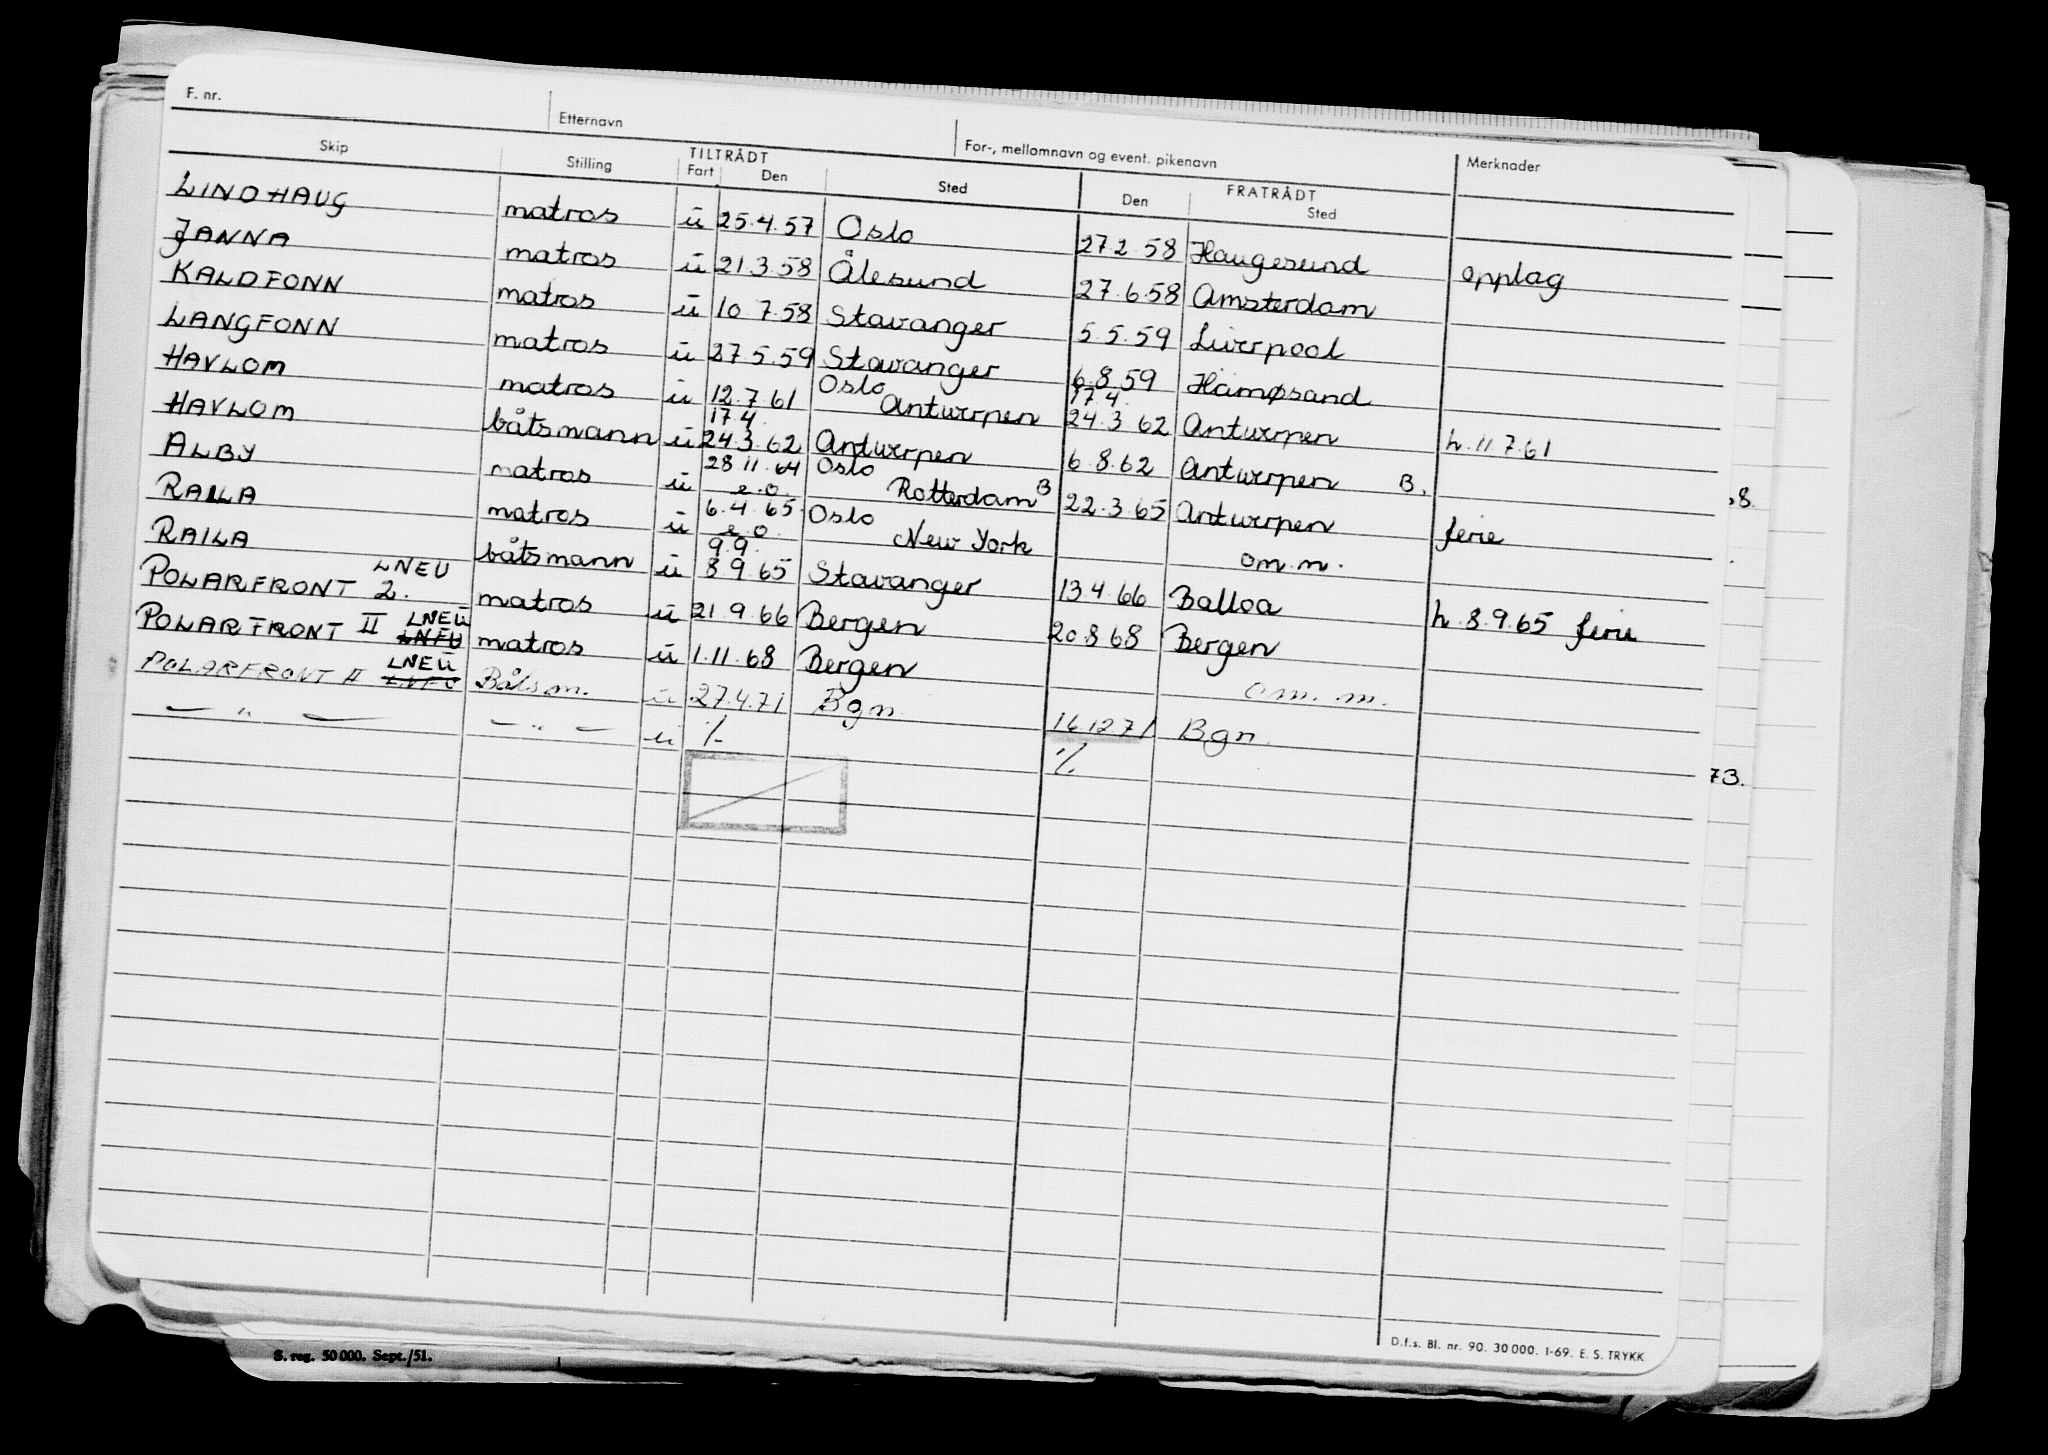 F. nr. Etternavn For-, mellomnavn og event. pikenavn Merknader
Skip Stilling TILTRÅDT Fart Den Sted FRATRÅDT Den Sted
LINDHAUG matros ū 25.4.57 Oslo 27.2.58 Haugesund opplag
JANNA matros ū 21.3.58 Ålesund 27.6.58 Amsterdam
KALDFONN matros ū 10.7.58 Stavanger 5.5.59 Liverpool
LANGFONN matros ū 27.5.59 Stavanger 6.8.59 Härnøsand
HAVLOM matros ū 12.7.61 Oslo Antwerpen 17.4. 24.3 62 Antwerpen h. 11 7.61
HAVLOM båtsmann ū 17 4. 24.3.62 Antwerpen 6.8.62 Antwerpen B.
ALBY matros ū 28 11.64 e.o. Oslo Rotterdam B 22.3.65 Antwerpen ferie
RAILA matros ū 6.4.65. e.o. Oslo New York om.m.
RAILA båtsmann ū 9.9. 8 9.65 Stavanger 13.4.66 Balboa h. 8.9.65 ferie
POLARFRONT 2. LNEU matros ū 21.9.66 Bergen 20.8 68 Bergen
POLARFRONT II LNEU LNFU matros ū 1.11.68 Bergen om. m.
POLARFRONT II LNEU Båtsm. u 27.4.71 Bgn 16 12 71 Bgn.
— " — — " — u /- ·/.
8.
73.
D.f.s. Bl. nr. 90. 30 000. 1-69. E. S. TRYKK
S. reg. 50 000. Sept./51.